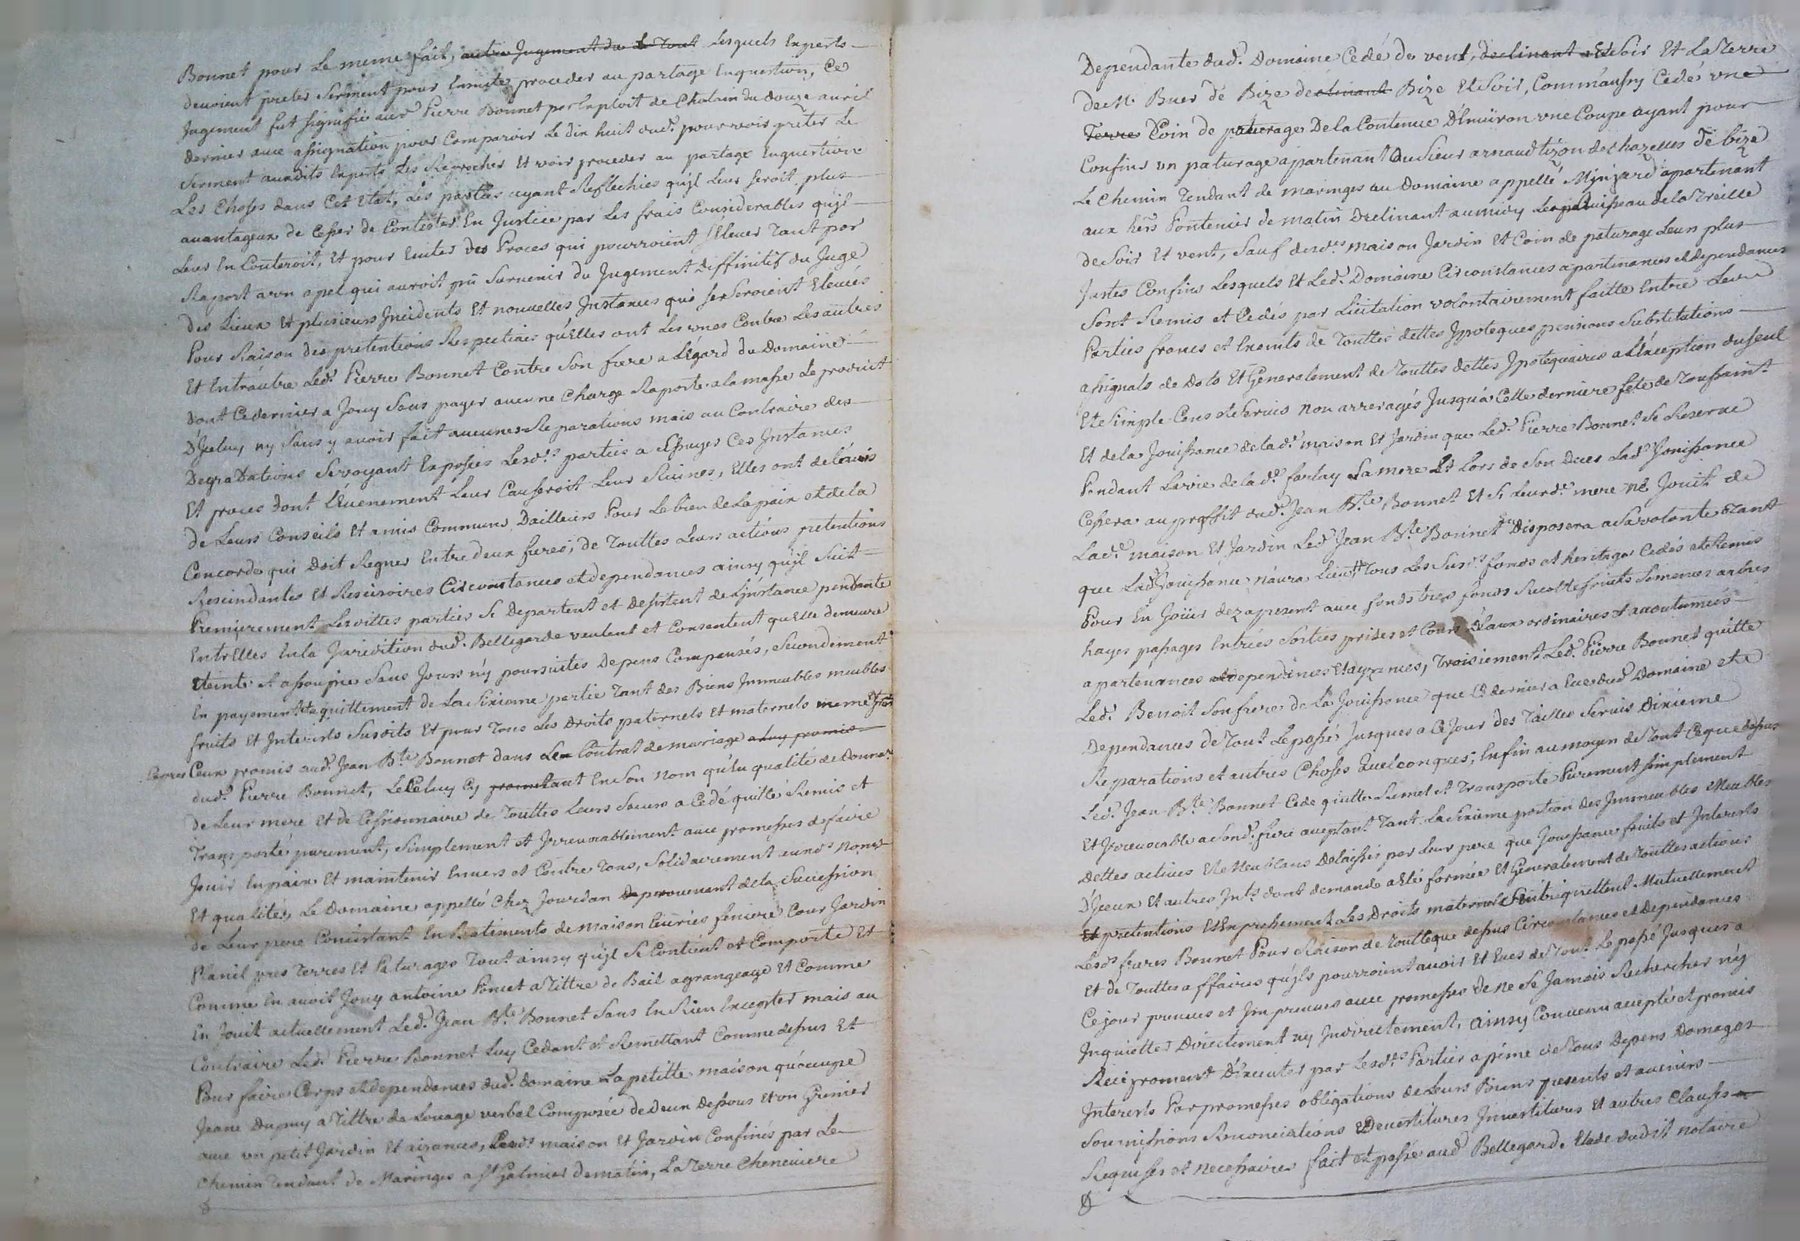 Bonnet pour le meme fait, autre Jugement du le Tout lesquels Experts
devoient preter Serment pour Ensuite proceder au partage Enquestion, Ce
Jugement fut signiffié aud. Pierre Bonnet par Exploit de Chalain du douze avril
dernier avec assignation pour Comparoir le dix huit dud. pour voir prêter le
Serment auxdits Experts les Reprocher Et voir proceder au partage Enquestion
Les Choses dans Cet Etat, Les parties ayant Reflechies qu'jl leur seroit plus
avantageux de Cesser de Contester En Justice par les frais Considerables qu'jl
leur En Couteroit, Et pour Eviter des Proces qui pourroient s'Elever Tant par
Raport a un apel qui auroit pü Survenir du Jugement diffinitif du Juge
des Lieux Et plusieurs Jncidents Et nouvelles Jnstances qui se Seroient Elevées
Pour Raison des pretentions Respectives qu'Elles ont les unes Contre les autres
Et Entr'autre Led. Pierre Bonnet Contre Son frere a l'Egard du Domaine
dont Ce dernier a Jouy Sans payer aucune Charge Raporté a la masse le produit
D'Jceluy ny Sans y avoir fait aucunes Reparations mais au Contraire des
Degradations Se voyant Exposées Lesd. parties a Essuyer Ces Jnstances
Et proces dont l'Evenement leur Causeroit leur Ruines, Elles ont de l'avis
de Leurs Conseils Et amis Communs, Dailleurs Pour le bien de la paix et de la
Concorde qui Doit Regner Entre deux freres, de Touttes Leurs actions pretentions
Rescindantes Et Rescisoires Circonstances et dependances ainsy qu'jl Suit
Premierement Lesdittes parties Se Departent et desistent de L'jnstance pendante
Entr'Elles En la Jurisdition dud. Bellegarde veulent et Consentent qu'Elle demeure
Eteinte et assoupie Sans Jours n'y poursuites Depens Compensés, Secondement
En payement Et aquittement de La Sixieme partie Tant des Biens Jmmeubles meubles
fruits Et Jnterets Susdits Et pour Tous Les Droits paternels Et maternels meme
Ceux promis aud. Jean Bte Bonnet dans Le Contrat de mariage a luy promis
dud. Pierre Bonnet, Le Celuy Cy promettant En Son nom qu'En qualité de Donnatr
de Leur mere Et de Cessionnaire de Touttes leurs Soeurs a Cedé quitté Remis et
Transporté purement, Simplement et Jrrevocablement avec promesses de faire
Jouir En paix Et maintenir Envers et Contre Tous, Solidairement auxd. noms
Et qualités Le Domaine appellé Chez Jourdan De provenant de la Succession
de Leur pere Consistant En Batiments de maison Ecuries feniere Cour Jardin
Planil prés Terres Et Paturages Tout ainsy qu'jl Se Contient et Comporte Et
Comme En avoit Jouy antoine Poncet a Tittre de Bail a grangeage Et Comme
En Jouit actuellement Led. Jean Bte Bonnet Sans En Rien Excepter mais au
Contraire Led. Pierre Bonnet Luy Cedant et Remettant Comme dessus Et
Pour faire Corps et dependances dud. Domaine La petitte maison qu'occupe
Jeane Dupuy a Tittre de Louage verbal Composée de deux Dessous Et un Grenier
avec un petit Jardin Et aizances, Lesd. maison Et Jardin Confinés par Le
Chemin Tendant de Maringes a St Galmier de matin, La Terre Cheneviere
Dependante dud. Domaine Cedé de vent, declinant a Et Soir Et La Terre
de Mr Buer de Bize declinant Bize Et Soir, Comm'aussy Cedés une
Terres Coin de paturages De la Contenue D'Environ une Coupe ayant pour
Confins un paturage apartenant au Sieur arnaud tizon de Chazelles de bize
Le Chemin Tendant de maringes au Domaine appellé Minjard apartenant
aux hers Pontenier de matin Declinant au midy Le Ruisseau de la Treille
de Soir Et vent, Sauf desd. maison Jardin Et Coin de paturage Leurs plus
Justes Confins Lesquels Et Led. Domaine Circonstances apartenances et dependances
Sont Remis et Cédés par Licitation volontairement faitte Entre Les
Parties francs et Exemts de Touttes dettes Jpoteques pensions Substitutions
assignats de Dots Et Generalement de Touttes dettes Jpotequaires a l'Exception du Seul
Et Simple Cens et Servis non arreragés Jusqu'a Cette derniere fête de Toussaint
Et de la Jouissance de lad. maison Et Jardin que Led. Pierre Bonnet Se Reserve
Pendant La vie de lad. farlay Sa mere Et Lors de Son Deces Lad. Jouissance
Cessera au proffit dud. Jean Bte Bonnet Et Si leurd. mere ne Jouit de
Lad. maison Et Jardin Led. Jean Bte Bonnet En Disposera a Sa volonté Etant
que Lad. Jouissance n'aura Lieu Tous Les Sus. fonds et heritages Cedés et Remis
Pour En Joüir dez a present avec fonds tres fonds Recolte fruits Semences arbres
hayes passages Entrées Sorties prises et Cours d'Eaux ordinaires et accoutumées
apartenances dependences Et ayzances, Troisiement Led. Pierre Bonnet quitte
Led. Benoit Son frere de la Jouissance que Ce dernier a Eue dud. Domaine et
Dependances de Tout Le passé Jusques a Ce Jour des Tailles Servis Dixieme
Reparations et autres Choses quelconques; Enfin au moyen de Tout Ce que dessus
Led. Jean Bte Bonnet Cede quitte Remet et Transporte Purement Simplement
Et Jrrevocable a Sond. frere aceptant Tant La Sixieme portion des Jmmeubles Meubles
Dettes actives Et Effets Delaissés par leur pere que Jouissance fruits et Jnterets
D'Jceux Et autres Jnts dont demande a Eté formée Et Generalement de Touttes actions
Et pretentions Et Expressement Les Droits maternels S'Entrequittent Mutuellement
Lesd. freres Bonnet Pour Raison de Tout ce que dessus Circonstances et dependances
Et de Touttes affaires qu'jls pourroient avoir Et Eues de Tout Le passé Jusques a
Ce jour prevues et Jmprevues avec promesses de ne Se Jamais Rechercher n'y
Jnquietter Directement ny Jndirectement, ainsy Convenu accepté et promis
Reciproment D'Executer par Lesd. Parties a peine de Tous Depens Domages
Jnterets Par promesses obligations de Leurs Biens presents et avenirs
Soumissions Renonciations Devestitures Jnvestitures Et autres Clauses
Requises et necessaires fait Et passé aud. Bellegarde Etude dudit notaire